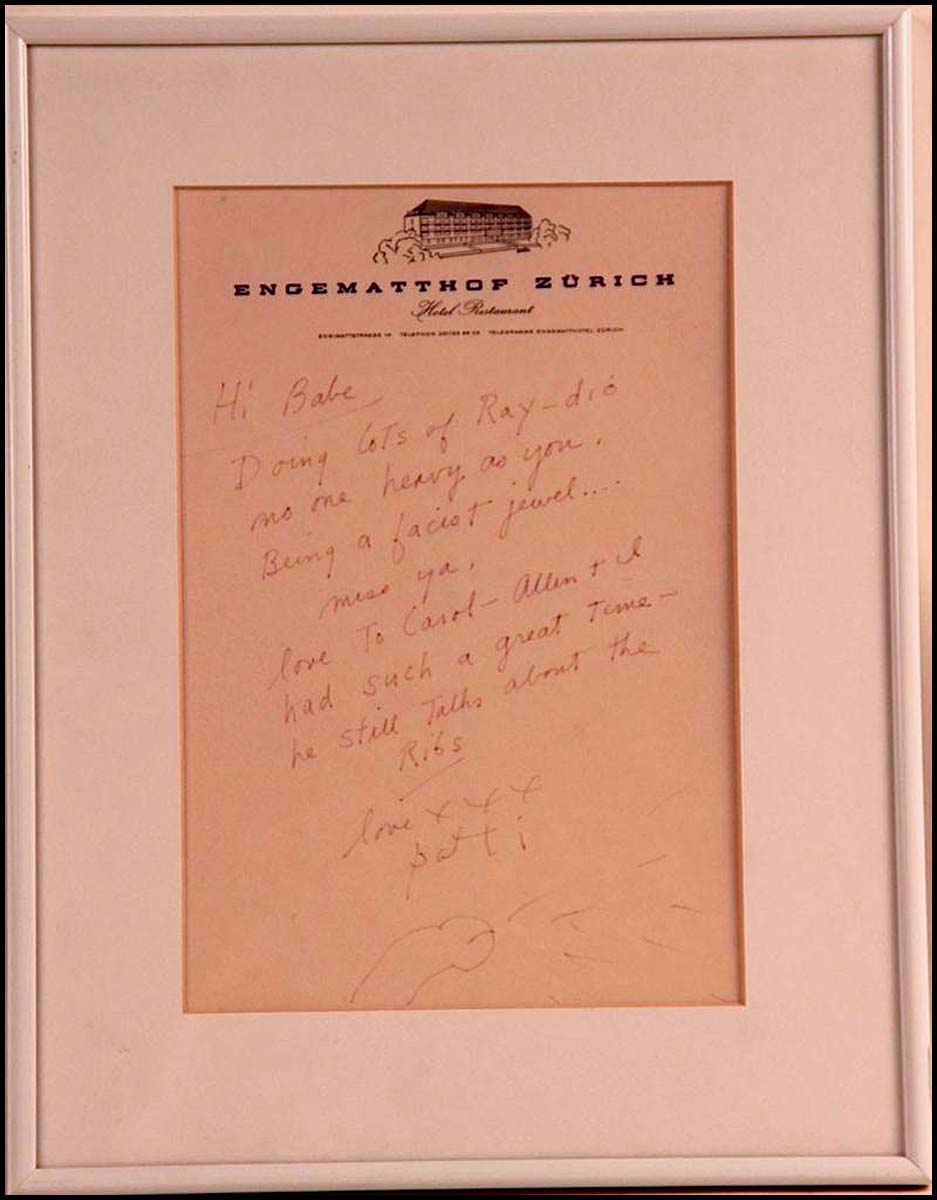 ENGEMATTHOF ZÜRICH
Hotel Restaurant
Hi Babe
Doing lots of Ray-dio
no one heavy as you.
Being a facist jewel....
miss ya.
love To Carol - Allen + I
had such a great Time -
he still Talks about the
Ribs
love x x x
patti